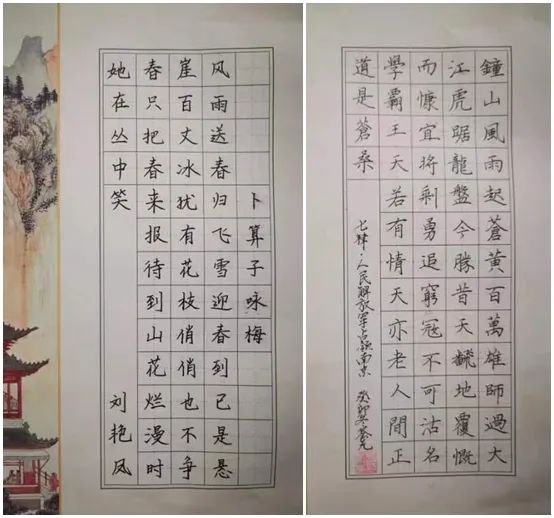 卜算子咏梅
风雨送春归飞雪迎春到已是悬
崖百丈冰犹有花枝俏俏也不争
春只把春来报待到山花烂漫时
她在丛中笑
刘艳凤
鐘山風雨起蒼黃百萬雄師過大
江虎踞龍盤今勝昔天飜地覆慨
而慷宜將剩勇追窮冠不可沽名
學霸王天若有情天亦老人間正
道是蒼桑
七律·人民解放軍占领南京 癸卯